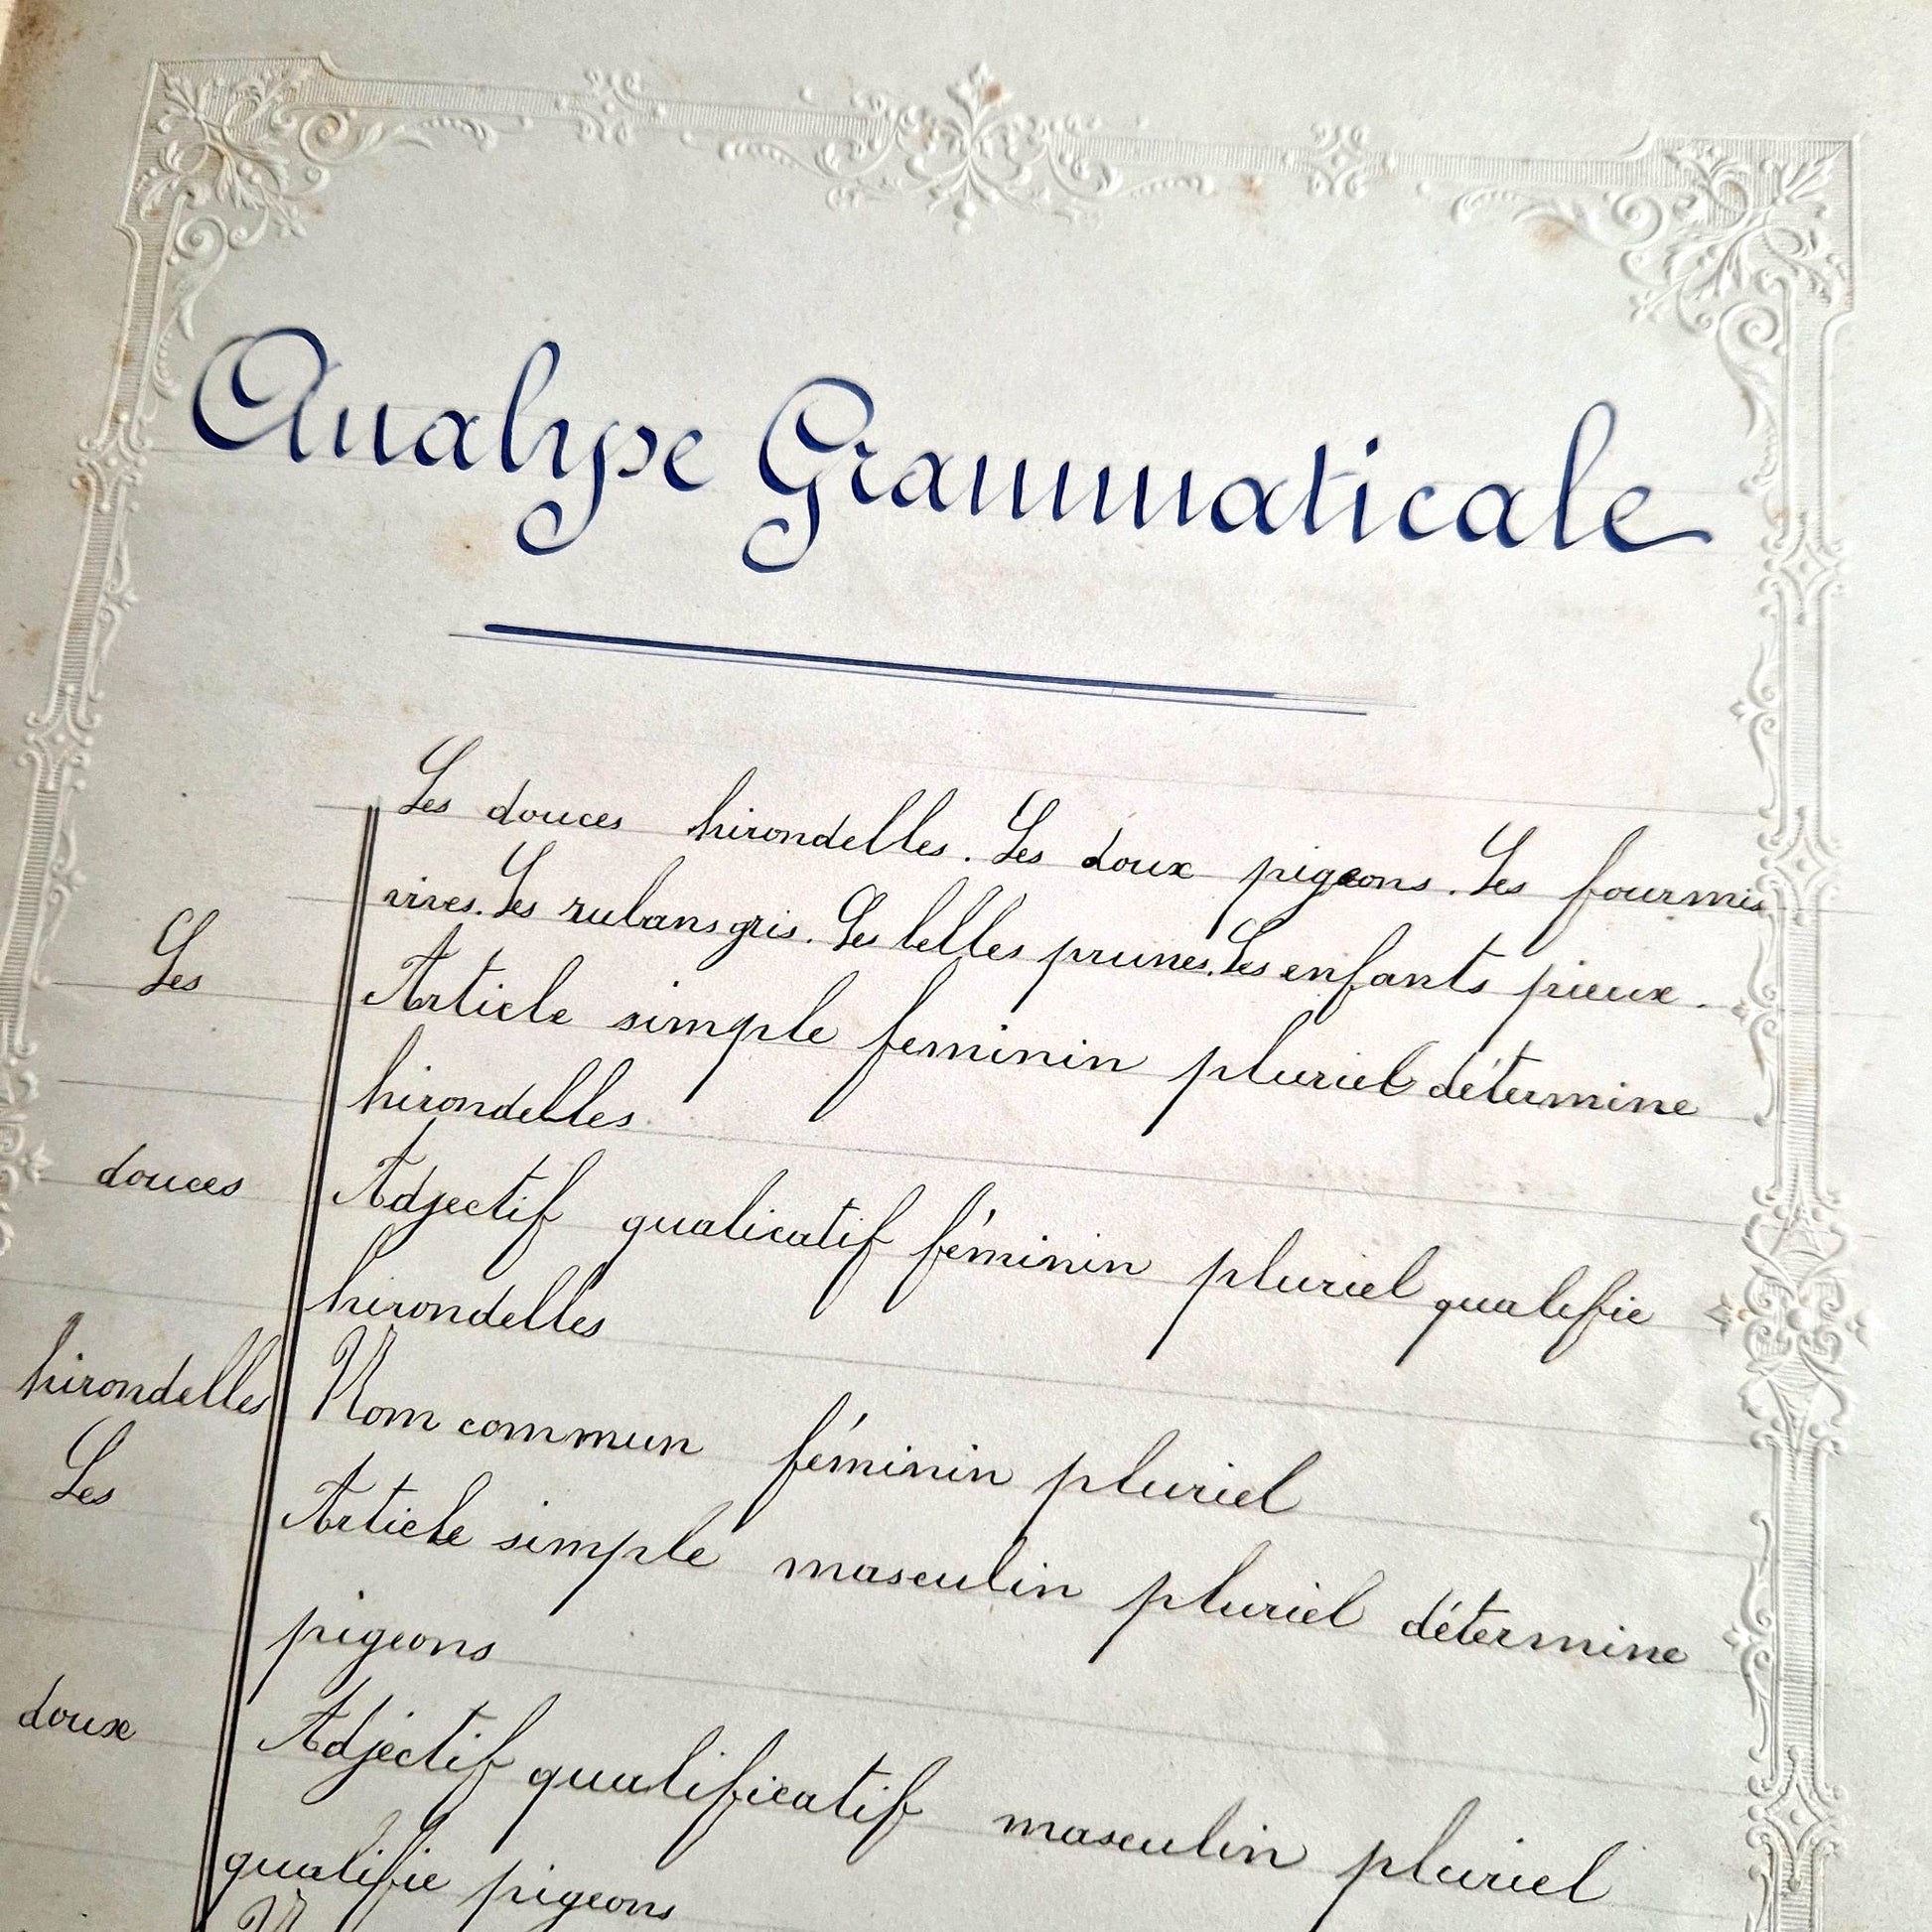 Analyse Grammaticale
Les douces hirondelles. Les doux pigeons. Les fourmis
vives. Les rubans gris. Les belles prunes. Les enfants pieux.
Les Article simple feminin pluriel détermine
hirondelles.
douces Adjectif qualicatif féminin pluriel qualifie
hirondelles
hirondelles Nom commun féminin pluriel
Les Article simple masculin pluriel détermine
pigeons
doux Adjectif qualificatif masculin pluriel
qualifie pigeons